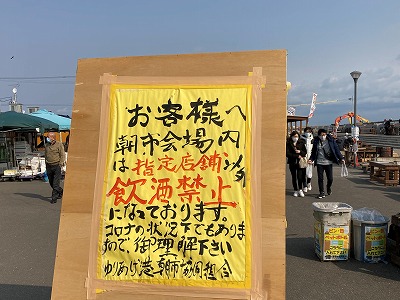 お客様へ
朝市会場内
は指定店舗以外
飲酒禁止
になっております。
コロナの状況下でもありま
すので御理解下さい
ゆりあげ港朝市協同組合